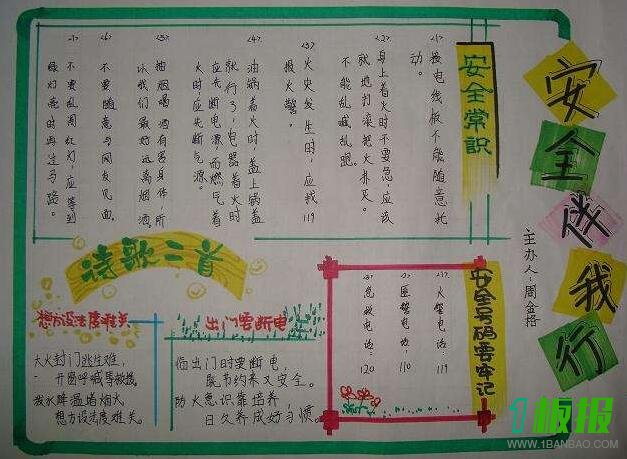 安全伴我行
主办人:周金格
安全常识
<1>、接电线板不能随意扯
动。
<2>、身上着火时不要急,应该
就地打滚把火扑灭。
不能乱喊乱跑。
<3>、火灾发生时,应拔119
报火警。
<4>、油锅着火时,盖上锅盖
就行了,电器着火时
应先断电源,而燃气着
火时,应先断气源。
<5>、抽烟喝酒有害身体,所
以我们最好远离烟酒。
<6>、不要随意与网友见面。
<7>、不要乱闯红灯,应等到
绿灯亮时再过马路。
诗歌二首
想方设法度难关
大火封门逃生难,
开窗呼喊等救援。
泼水降温堵烟火,
想方设法度难关。
出门要断电
临出门时要断电,
既节约来又安全。
防火意识靠培养,
日久养成好习惯。
安全号码要牢记
<1>、火警电话:119
<2>、匪警电话:110
<3>、急救电话:120
1板报
WWW.1BANBAO.COM